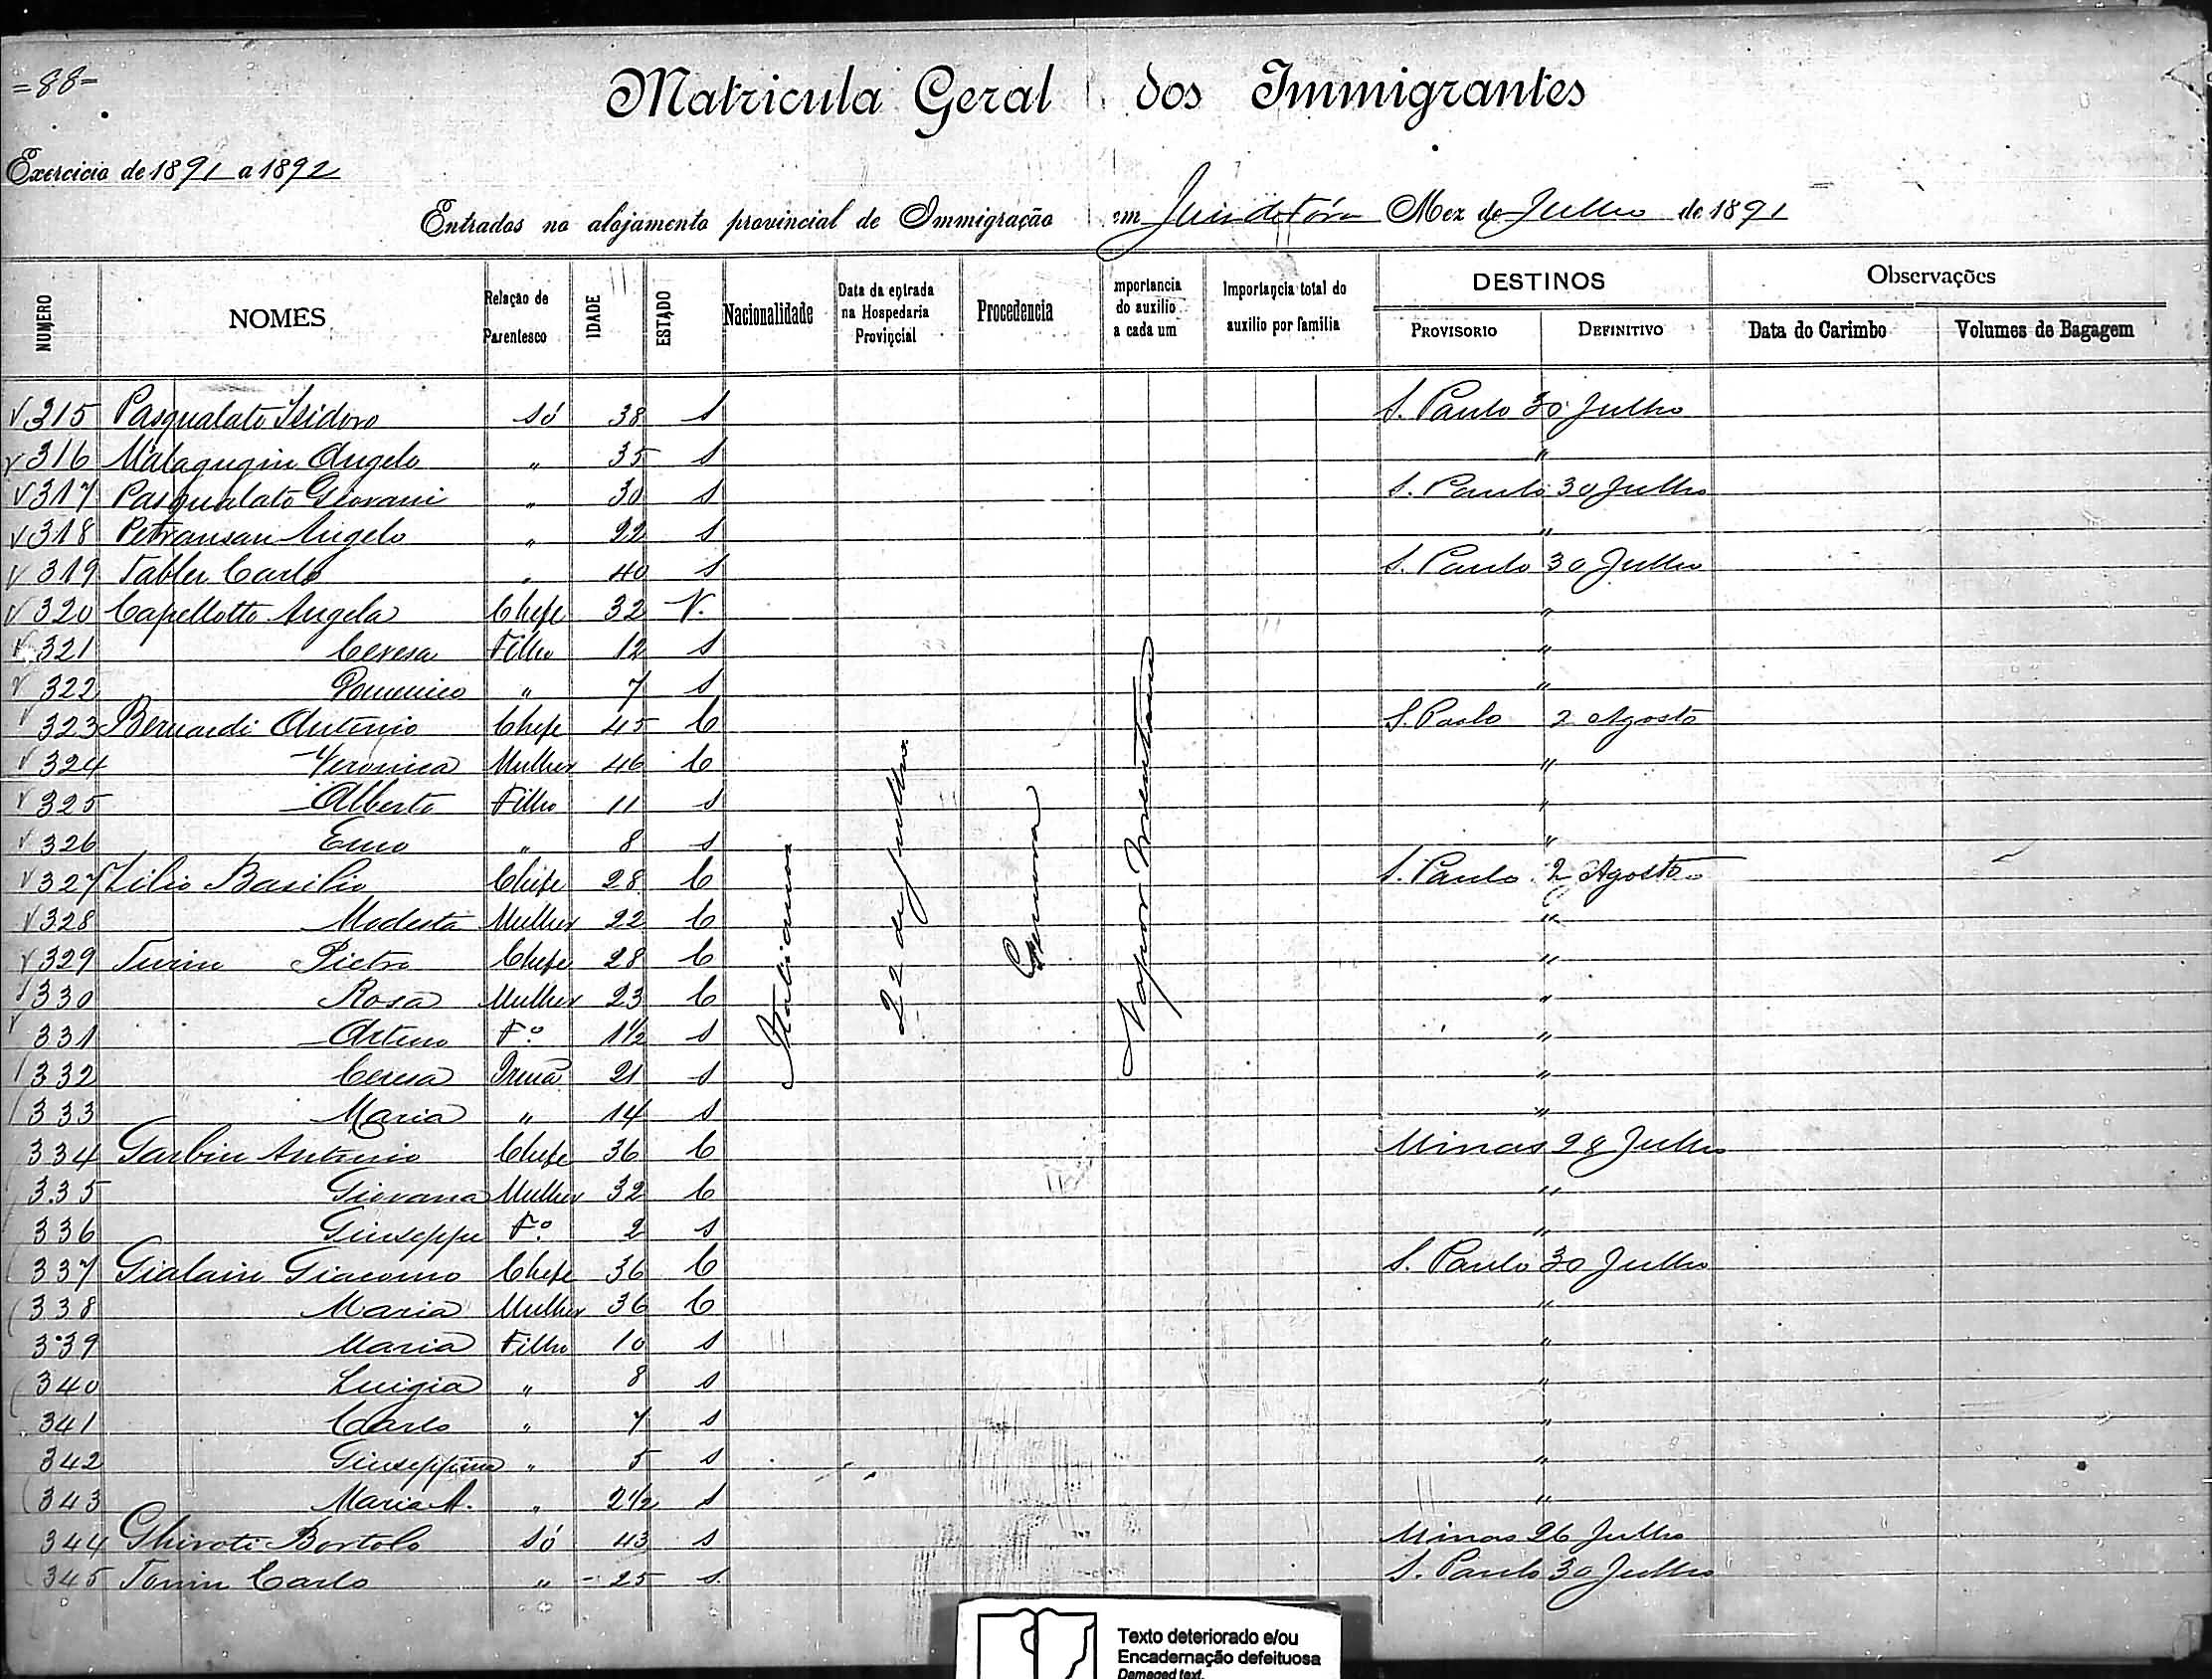 =88=
Matricula Geral dos Immigrantes
Exercicio de 1891 a 1892
Entrados no alojamento provincial de Immigração em Juiz de Fóra Mez de Julho de 1891
NUMERO NOMES Relação de Parentesco IDADE ESTADO Nacionalidade Data da entrada na Hospedaria Provincial Procedencia mportancia do auxilio a cada um Importancia total do auxilio por familia DESTINOS PROVISORIO DEFINITIVO Observações Data do Carimbo Volumes de Bagagem
315 Pasqualato Isidoro Só 38 S S. Paulo 30 Julho
316 Malagugin Angelo " 35 S "
317 Pasqualato Giovani " 30 S S. Paulo 30 Julho
318 Angelo " 22 S "
319 Tabler Carlo " 40 S S. Paulo 30 Julho
320 Capellotto Angela Chefe 32 V. "
321 Ceresa Filho 12 S "
322 Domenico " 7 S "
323 Bernardi Antonio Chefe 45 C S. Paolo 2 Agosto
324 Veronica Mulher 46 C "
325 Alberto Filho 11 S "
326 " 8 S "
327 Lilio Basilio Chefe 28 C S. Paulo 2 Agosto
328 Modesta Mulher 22 C "
329 Turin Pietro Chefe 28 C "
330 Rosa Mulher 23 C "
331 Arturo Fº 1 1/2 S "
332 Ceresa Irmã 21 S "
333 Maria " 14 S "
334 Garbin Antonio Chefe 36 C Minas 28 Julho
335 Giovana Mulher 32 C "
336 Giuseppe Fº 2 S "
337 Gialain Giacomo Chefe 36 C S. Paulo 30 Julho
338 Maria Mulher 36 C "
339 Maria Filho 10 S "
340 Luigia " 8 S "
341 Carlo " 7 S "
342 Giuseppina " 5 S "
343 Maria A. " 2 1/2 S "
344 Ghiroti Bortolo Só 43 S Minas 26 Julho
345 Tonin Carlo " 25 S. S. Paulo 30 Julho
Italianos
22 de Julho
Genova
Vapor Montevideo
Texto deteriorado e/ou
Encadernação defeituosa
Damaged text,